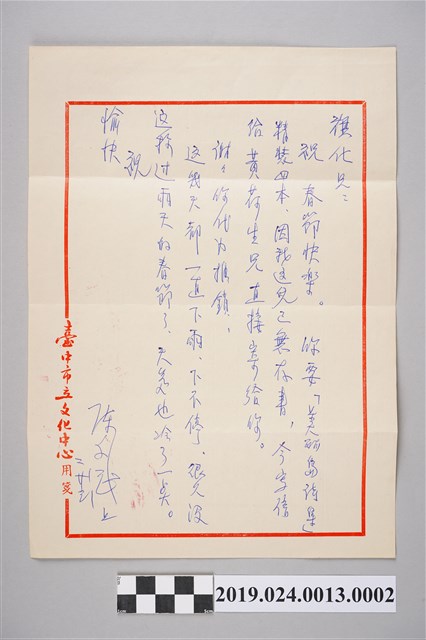 旗化兄：
祝 春節快樂。 你要「美丽島詩選
精裝四本，因我这兒已無存書，今寫信
給黃荷生兄直接寄給你。
謝々你代为推銷，
这幾天都一直下雨、下不停，很久沒
这樣过雨天的春節了，天氣也冷了一点。
祝
愉快
陳千武上
臺中市立文化中心用箋
2019.024.0013.0002